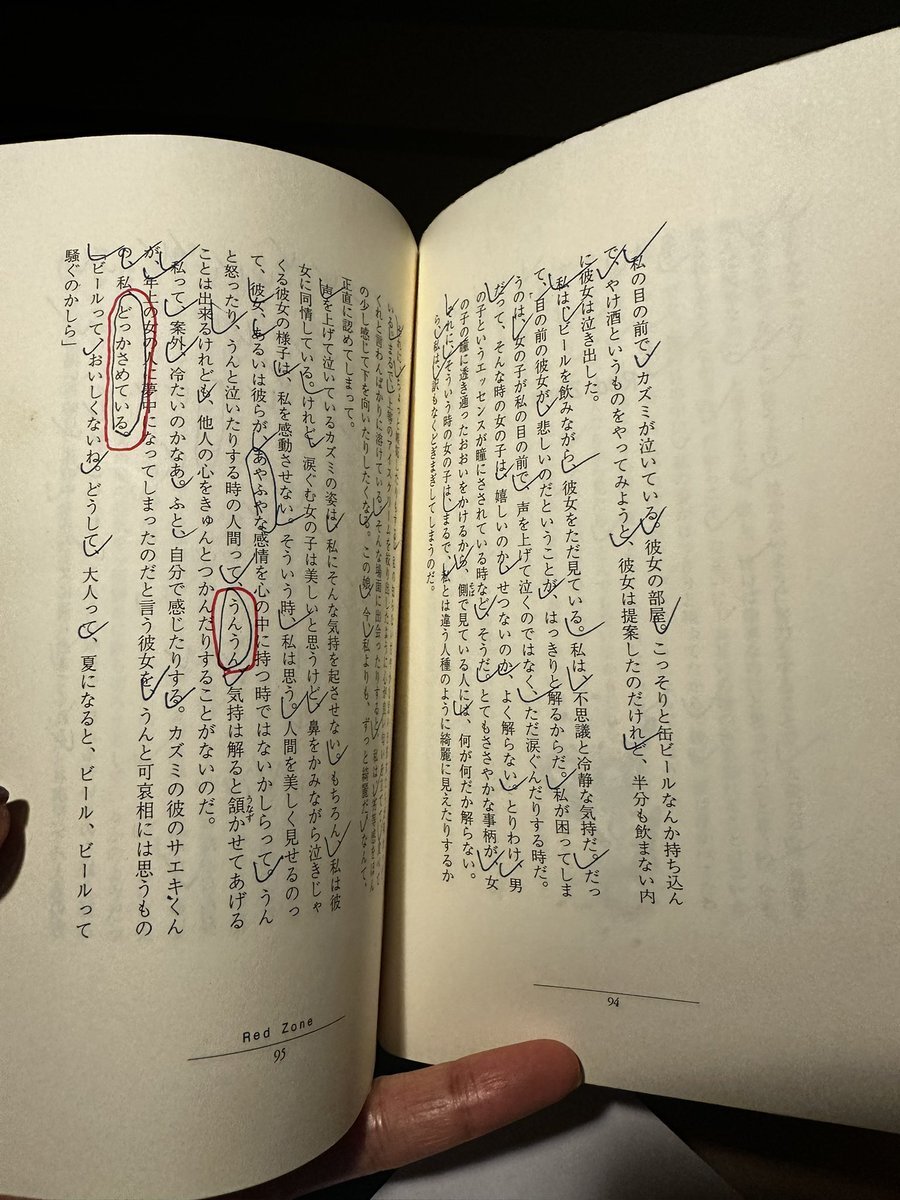 私の目の前で、カズミが泣いている。彼女の部屋。こっそりと缶ビールなんか持ち込ん
で、やけ酒というものをやってみようと、彼女は提案したのだけれど、半分も飲まない内
に彼女は泣き出した。
私は、ビールを飲みながら、彼女をただ見ている。私は、不思議と冷静な気持だ。だっ
て、目の前の彼女が、悲しいのだということが、はっきりと解るからだ。私が困ってしま
うのは、女の子が私の目の前で、声を上げて泣くのではなく、ただ涙ぐんだりする時だ。
だって、そんな時の女の子は、嬉しいのか、せつないのか、よく解らない。とりわけ、男
の子というエッセンスが瞳にさされている時など、そうだ。とてもささやかな事柄が、女
の子の瞳に透き通ったおおいをかけるから、側で見ている人には、何が何だか解らない。
そば
それに、そういう時の女の子は、まるで、私とは違う人種のように綺麗に見えたりするか
ら、私は、訳もなくどぎまぎしてしまうのだ。
くれと言わんばかりに溶けている。そんな場面に出会ったりすると、私は
の少し感じて下を向いたりしたくなる。この娘、今、私よりも、ずっと綺麗だ、なんて、
正直に認めてしまって。
声を上げて泣いているカズミの姿は、私にそんな気持を起させない。もちろん、私は彼
女に同情している。けれど、涙ぐむ女の子は美しいと思うけど、鼻をかみながら泣きじゃ
くる彼女の様子は、私を感動させない。そういう時、私は思う。人間を美しく見せるのっ
て、彼女、あるいは彼らが、あやふやな感情を心の中に持つ時ではないかしらって。うん
と怒ったり、うんと泣いたりする時の人間って、うんうん、気持は解ると頷かせてあげる
うなず
ことは出来るけれども、他人の心をきゅんとつかんだりすることがないのだ。
私って、案外、冷たいのかなあ。ふと、自分で感じたりする。カズミの彼のサエキくん
が、年上の女の人に夢中になってしまったのだと言う彼女を、うんと可哀相には思うもの
の、私、どっかさめている。
「ビールって、おいしくないね。どうして、大人って、夏になると、ビール、ビールって
騒ぐのかしら」
94
Red Zone
95